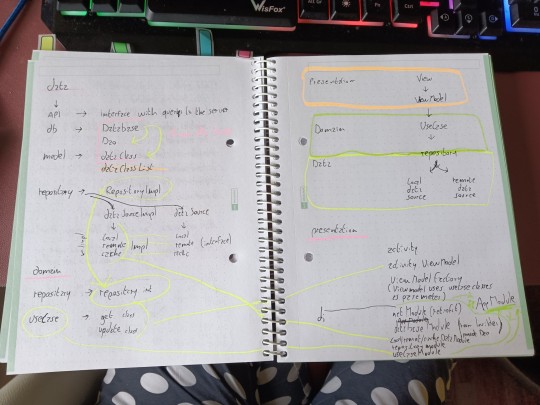 WisFox
data
API → interface with querys to the server
db → Database
Dao
model → data class
data class List
repository → Repository Impl
data Source Impl
data Source
local
remote
cache
Impl
local
remote (interface)
cache
domain
repository → repository int
useCase → get
update
Presentation
View
ViewModel
Domain
UseCase
repository
Data
local data source
remote data source
presentation
activity
activity ViewModel
ViewModel Factory
(ViewModel uses usecase classes
as parameters)
App Module
di
net Module (retrofit)
database Module
remote Dao
Data Module
repository module
useCase Module